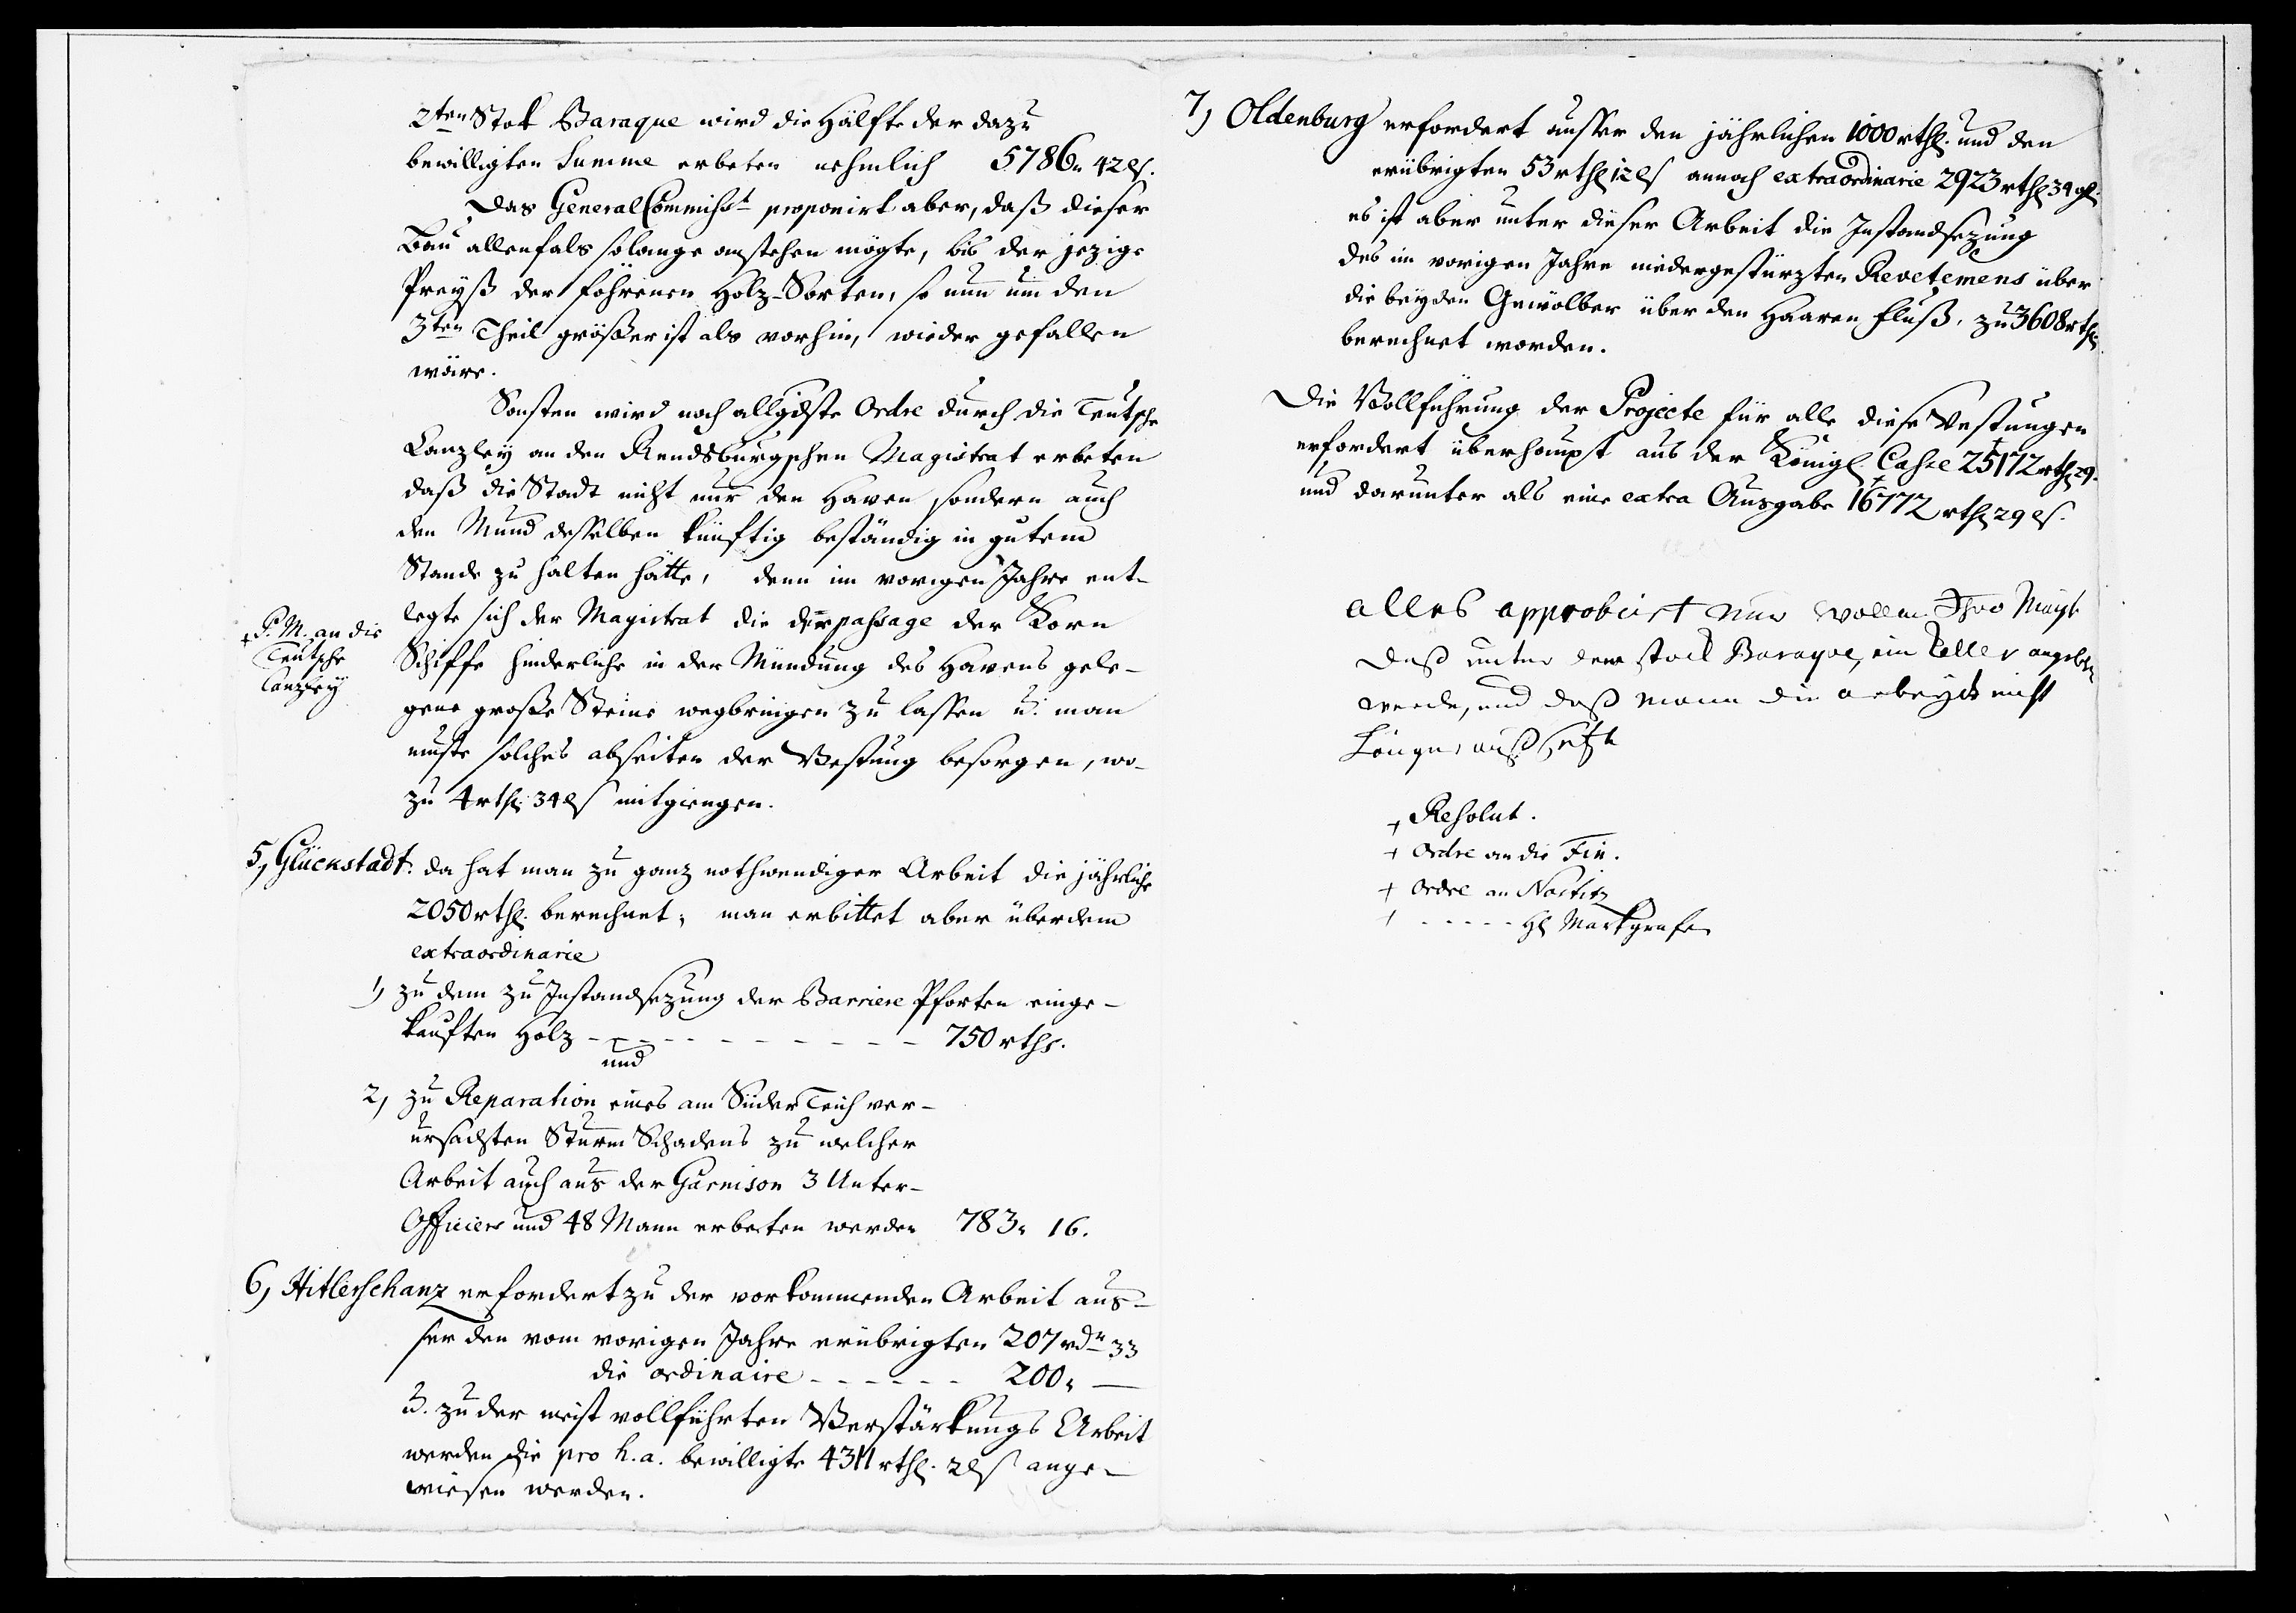 2ten Stok Baraque wird die Hälfte der dazu
bewilligten Summe erbeten nehmlich 5786„ 42 ls.
Das General Commisst proponirt aber, daß dieser
Bau allenfals so lange anstehen mögte, bis der jezige
Preyß der föhrenen Holz-Sorten, so nun um den
3ten Theil größer ist als vorhin, wieder gefallen
wäre.
Sonsten wird noch allgdste Ordre durch die Teutsche
Canzley an den Rendsburgschen Magistrat erbeten
daß die Stadt nicht nur den Haven sondern auch
den Mund desselben künftig beständig in gutem
Stande zu halten hätte, denn im vorigen Jahre ent-
legte sich der Magistrat die der passage der Korn
Schiffe hinderliche in der Mündung des Havens gele-
gene große Steine wegbringen zu lassen u. man
muste solches abseiten der Vestung besorgen, wo-
zu 4 rthl. 34 ls mitgiengen.
+ P. M. an die
Teutsche
Canzley
5, Glückstadt. da hat man zu ganz nothwendiger Arbeit die jährliche
2050 rthl. berechnet; man erbittet aber überdem
extraordinarie
1, zu dem zu Instandsezung der Barriere Pforten einge-
kauften Holz - - - - - - - - - - 750 rthl.
und
2, zu Reparation eines am Süder Teich ver-
ursachten Sturm Schadens zu welcher
Arbeit auch aus der Garnison 3 Unter-
Officiers und 48 Mann erbeten werden 783„ 16.
6, Hitlerschanz erfordert zu der vorkommenden Arbeit aus-
ser den vom vorigen Jahre erübrigten 207 rd 33
die ordinaire - - - - - - 200„ —
U. zu der meist vollführten Verstärkungs Arbeit
werden die pro h. a. bewilligte 4311 rthl. 2 ls ange-
wiesen werden.
7, Oldenburg erfordert ausser den jährlichen 1000 rthl. und den
erübrigten 53 rthl 12 ls annoch extraordinarie 2923 rthl 34 ls.
es ist aber unter dieser Arbeit die Instandsezung
des im vorigen Jahre niedergestürzten Revetemens über
die beyden Gewölber über den Haaren Fluß, zu 3608 rthl
berechnet worden.
Die Vollführung der Projecte für alle diese Vestungen
erfordert überhaupt aus der Königl. Casse 25172 rthl 29.
und darunter als eine extra Ausgabe 16772 rthl 29 ls.
alles approbirt nur wollen Ihro Mayt
daß unter dem stock Baraque, ein Keller angelegt
werde, und daß mann die arbeyt nicht
länger aus setze
+ Resolut.
+ Ordre an die Fin.
+ Ordre an Nostitz
+ - - - - - H Markgrafen